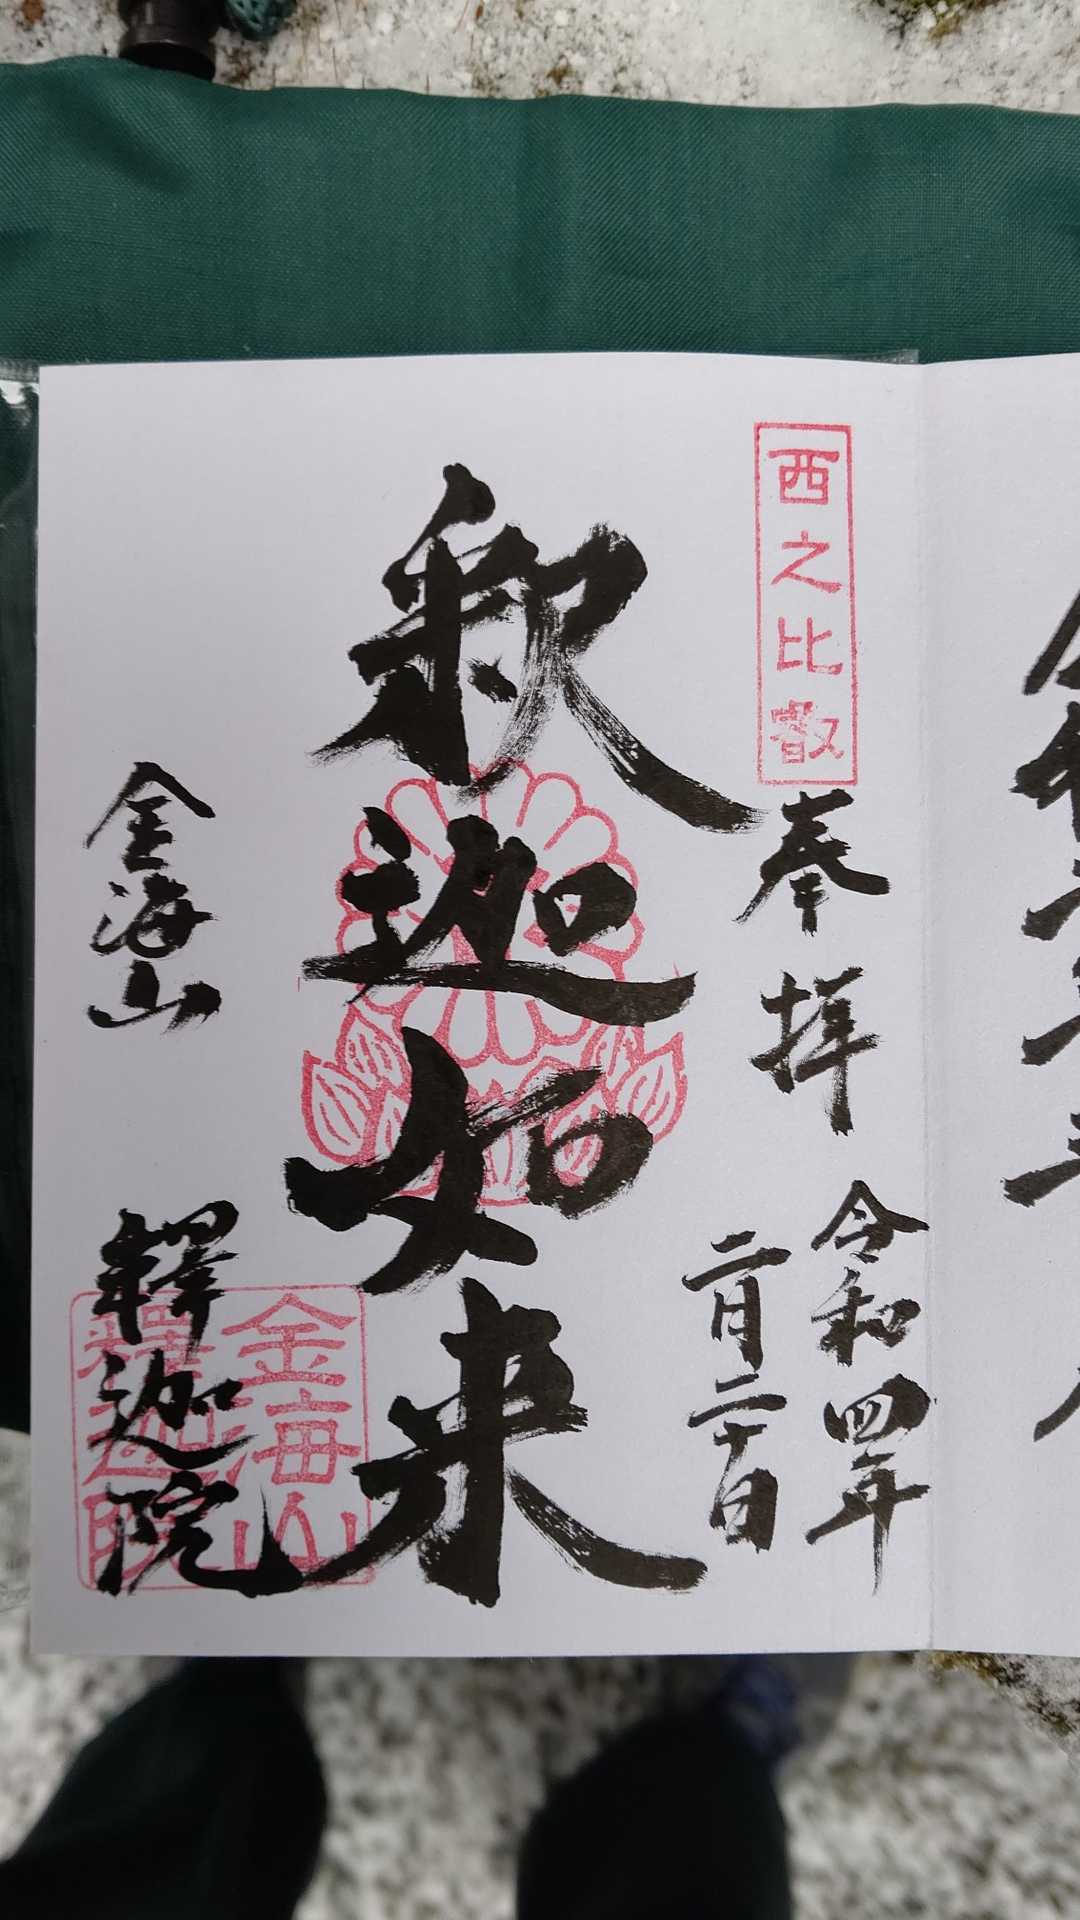 西之比叡
奉拝
令和四年
二月二十日
釈迦如来
金海山
釋迦院
金海山
釋迦院